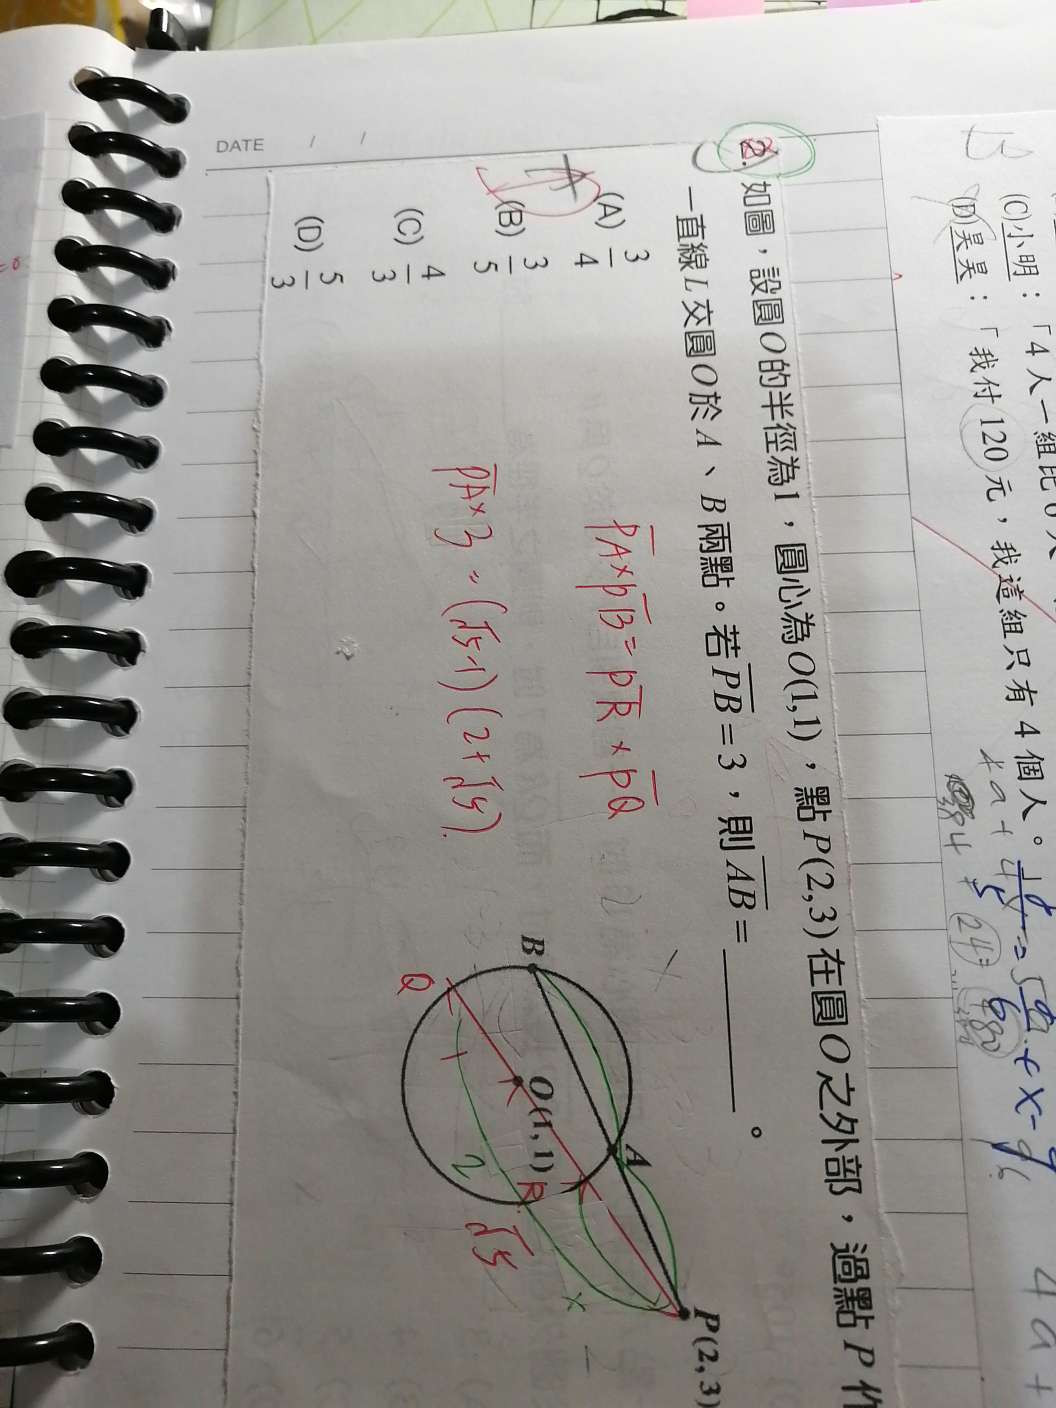 (C)小明：「4人一組比6人
B (D)昊昊：「我付120元，我這組只有4個人。
DATE / /
2. 如圖，設圓O的半徑為1，圓心為O(1,1)，點P(2,3)在圓O之外部，過點P作
一直線L交圓O於A、B兩點。若PB=3，則AB=＿＿＿＿。
A
(A) 3/4
(B) 3/5
(C) 4/3
(D) 5/3
PA×PB=PR×PQ
PA×3=(√5-1)(2+√5).
B
A
P(2,3)
O(1,1)
Q
R
1
2
√5
x